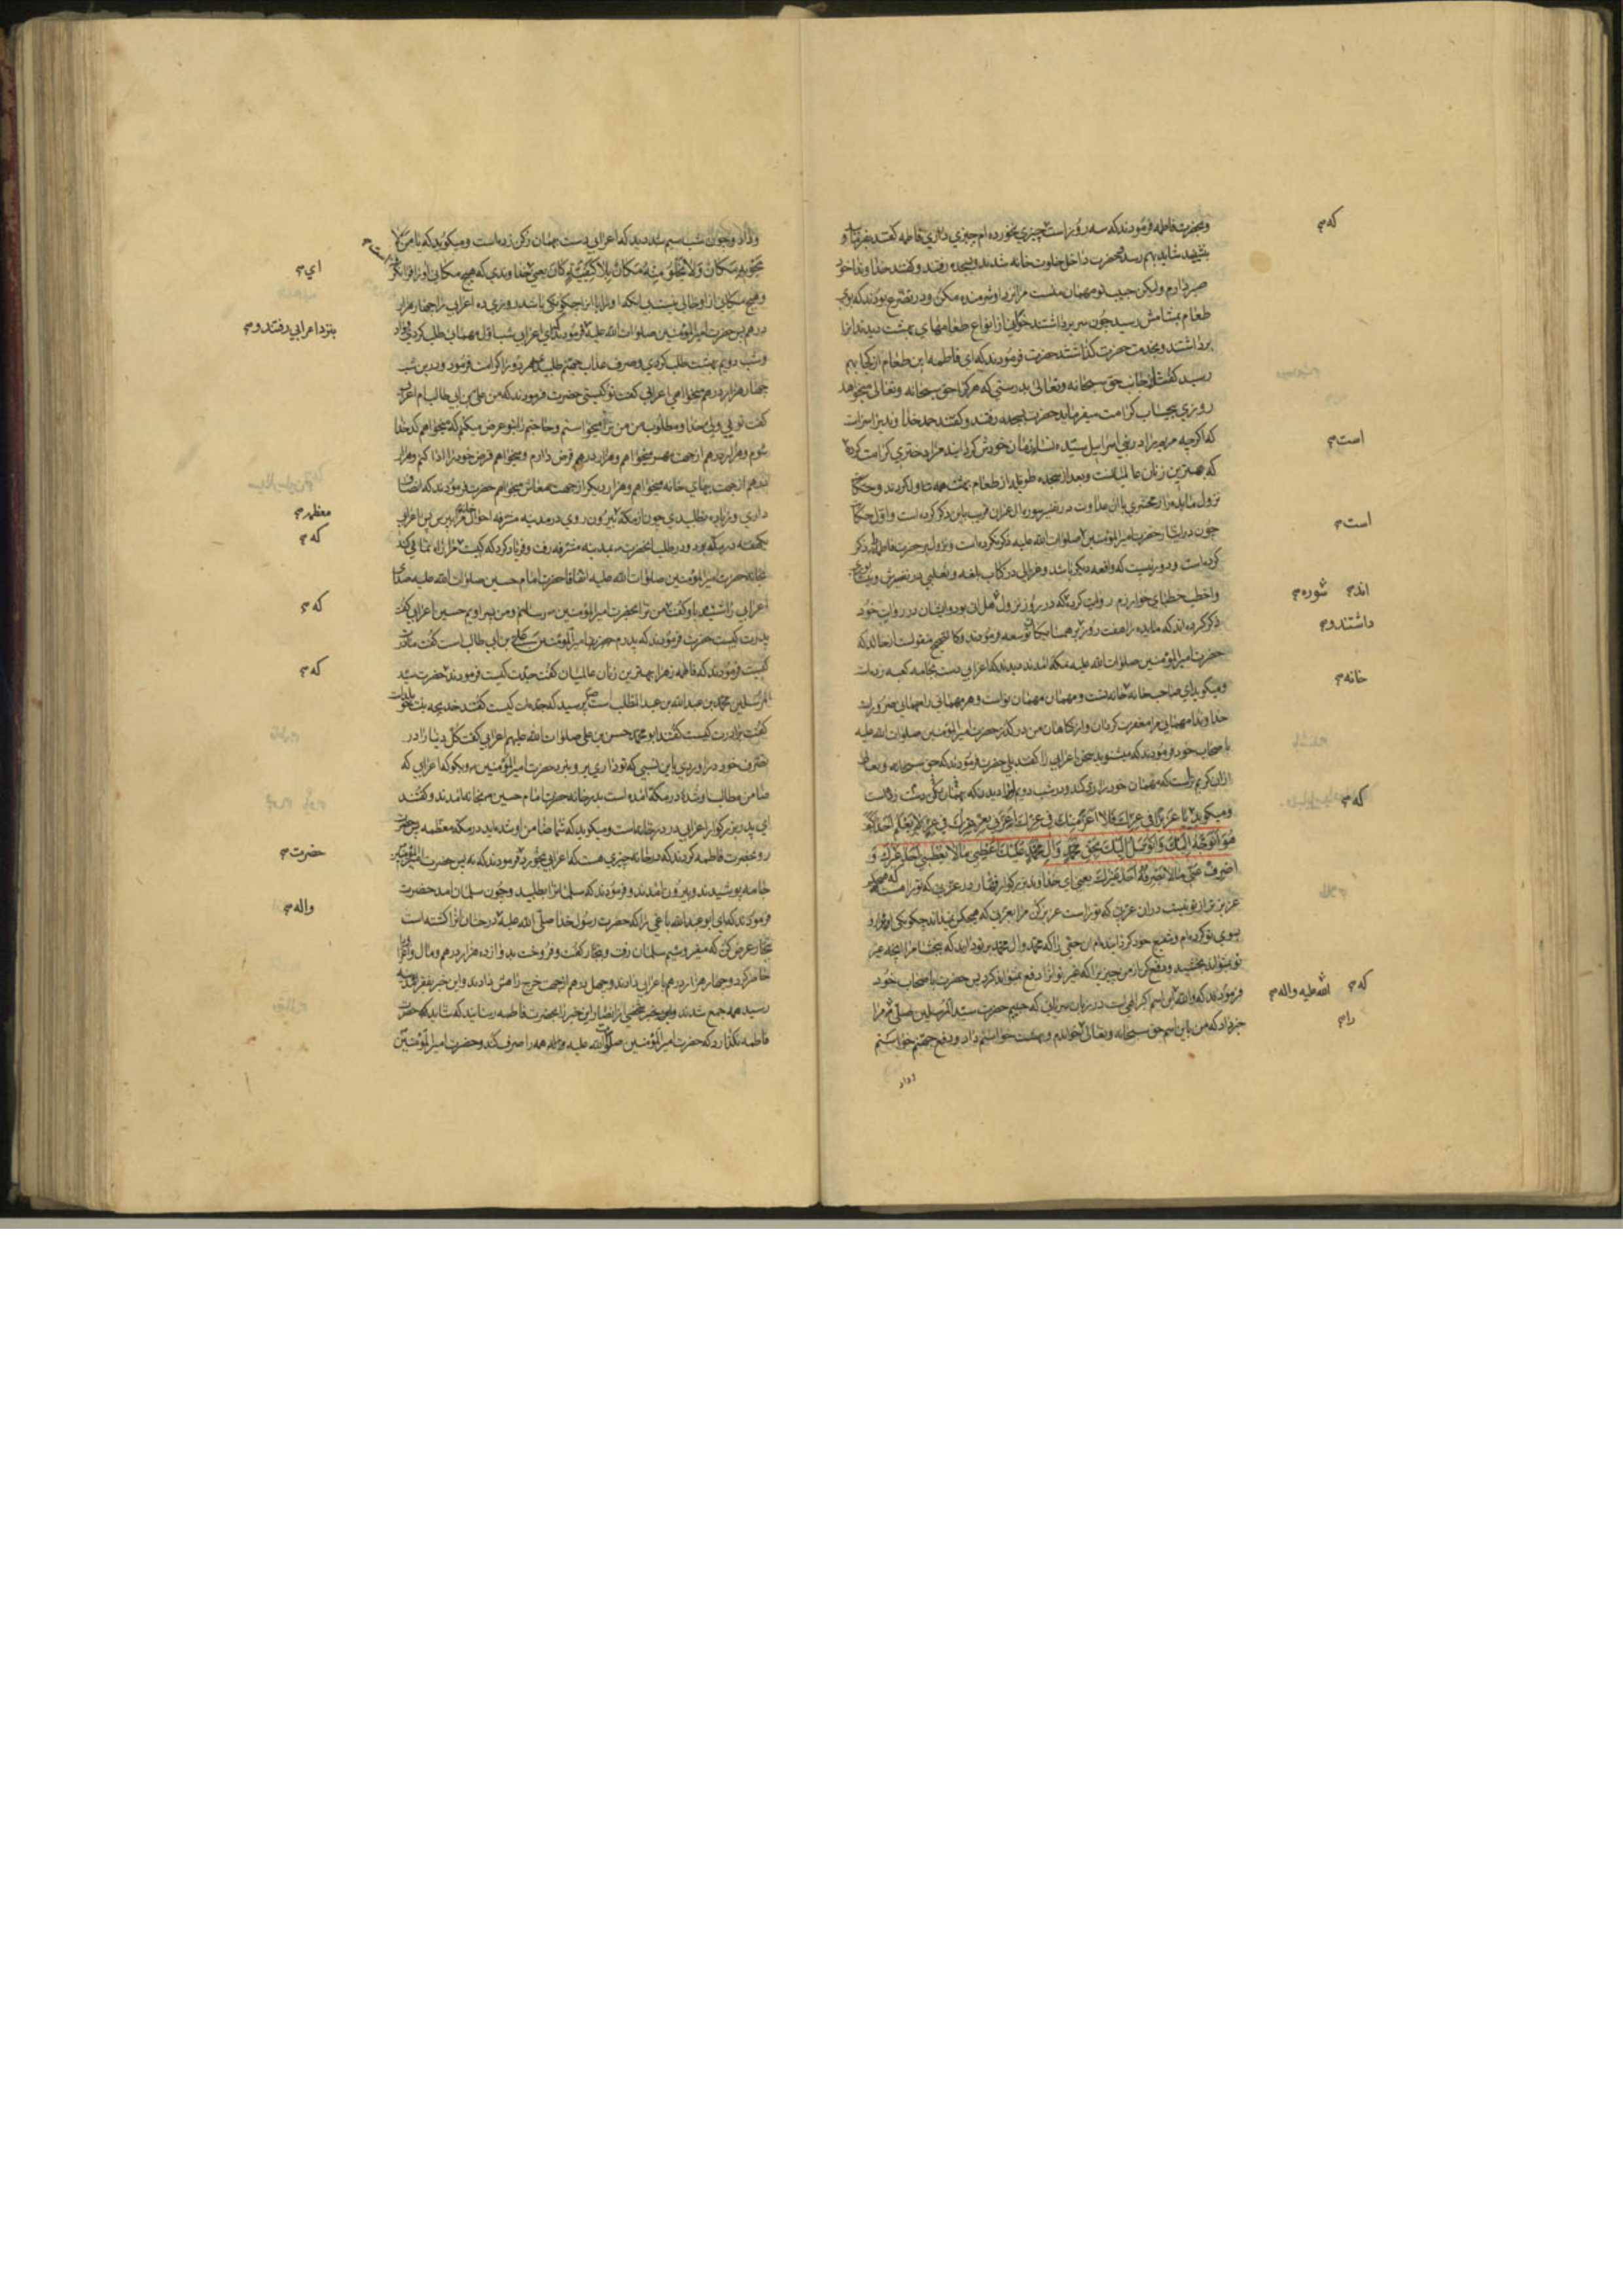 وبحضرت فاطمه فرمودند که سه روز است چیزی نخورده ام چیزی داری فاطمه گفتند بفرمائید و
بنشینید شاید بهم رسد و حضرت داخل خلوت خانه شدند و بسجده رفتند و گفتند خداوندا خود
صبر دارم ولیکن حبیب تو مهمان منست مرا نزد او شرمنده مکن و در تضرع بودند که بوی
طعام بمشامش رسید چون سر برداشتند خوانی از انواع طعامهای بهشت دیدند انرا
برداشتند و بخدمت حضرت گذاشتند حضرت فرمودند که ای فاطمه این طعام از کجا بهم
رسید گفت از جانب حق سبحانه وتعالی بدرستی که هر کرا حق سبحانه وتعالی میخواهد
روزی بیحساب کرامت میفرماید حضرت بسجده رفتند و گفتند حمد خداوندیرا سزاست
که اگرچه مریم را در بنی اسرائیل سیده نساء زمان خودش گردانید مرا دختری کرامت کرد
که بهترین زنان عالمیانست و بعد از سجده طویله از طعام بهشت همه تناول کردند و حکایت
نزول مایده را زمخشری با آن عداوت در تفسیر سوره ال عمران قریب باین ذکر کرده است و اول حکایت
چون در ایثار حضرت امیرالمؤمنین صلوات الله علیه ذکر نکرده است و نزول بر حضرت فاطمه را ذکر
کرده است و دور نیست که واقعه دیگر باشد و غزالی در کتاب بلغه و ثعلبی در تفسیرش و
واخطب خطبای خوارزم روایت کرده که در روز نزول هل اتی بود وایشان در روایت خود
ذکر کرده اند که مایده را هفت روز بر همسایگان توسعه فرمودند و کالصحیح منقولست از خالد که
حضرت امیرالمؤمنین صلوات الله علیه بمکه امدند دیدند که اعرابی دست بجامه کعبه زده است
ومیگوید ای صاحب خانه خانه تست و مهمان مهمان تو است و هر مهمانی را مهمانی ضرور است
خداوندا مهمانی مرا مغفرت گردان و از گناهان من درگذر حضرت امیرالمؤمنین صلوات الله علیه
باصحاب خود فرمودند که میشنوید سخن اعرابی را گفتند بلی حضرت فرمودند که حق سبحانه وتعالی
ازان کریم تر است که مهمان خود را رد کند و در شب دویم او را دیدند که بهمان رکن دست زده است
ومیگوید یا عزیزا فی عزك فلا اعز منك فی عزك اعزنی بعز عزك فی عز لا یعلم احد کیف
هو اتوجه الیك واتوسل الیك بحق محمد وال محمد علیك اعطنی مالا یعطینی احد غیرك و
اصرف عنی مالا یصرفه احد غیرك یعنی ای خداوند بزرگوار
عزیز تر از تو نیست دران عزتی که تو راست عزیز کن مرا بعزتی که هیچکس نمیداند چگونگی انرا رو
بسوی تو کرده ام وشفیع خود گردانیده ام ان حقی را که محمد وال محمد بر تو دارند که ببخشا مرا انچه غیر
تو نمیتواند بخشید و دفع کن از من چیزیرا که غیر تو انرا دفع نمیتواند کرد پس حضرت باصحاب خود
فرمودند که والله این اسم اکبر الهی ست در زبان سریانی که حبیبم حضرت سید المرسلین صلی مرا
خبر داد که من باین اسم حق سبحانه وتعالی خواندم و بهشت خواستم داد و دفع جهنم خواستم
وداد
که
است
است
اند شوره
داشتند و
خانه
که
که الله علیه واله
را
وداد و چون شب سیم شد دیدند که اعرابی دست بهمان رکن زده است و میگوید که یا من لا
یحویه مکان ولا یخلو منه مکان بلا کیفیة کان یعنی خداوندی که هیچ مکانی او را فرا نگرفته
وهیچ مکانی از او خالی نیست بی انکه او را با انرا چگونگی باشد روزی ده اعرابی را چهار هزار
درهم پس حضرت امیرالمؤمنین صلوات الله علیه فرمودند که ای اعرابی شب اول مهمانی طلب کردی داد
وشب دویم بهشت طلب کردی و صرف عذاب جهنم طلب هر دو را کرامت فرمود و درین شب
چهار هزار درهم میخواهی اعرابی گفت تو کیستی حضرت فرمودند که من علی بن ابی طالب ام اعرابی
گفت توئی ولی خدا و مطلوب من من ترا میخواستم و حاجتم را بتو عرض میکنم که میخواهم کدخدا
شوم و هزار درهم از جهت مهر میخواهم و هزار درهم قرض دارم و میخواهم قرض خود را ادا کنم و هزار
درهم از جهت بهای خانه میخواهم و هزار دیگر از جهت معاش میخواهم حضرت فرمودند که انصاف
داری و زیاده نطلبیدی چون از مکه بیرون روی در مدینه مشرفه احوال خانه مرا بپرس پس اعرابی
یکهفته در مکه بود و در طلب انحضرت بمدینه مشرفه رفت و فریاد کرد که کیست مرا راه نمائی کند
بخانه حضرت امیرالمؤمنین صلوات الله علیه اتفاقا حضرت امام حسین صلوات الله علیه صدای
اعرابی را شنید با و گفت من ترا بحضرت امیرالمؤمنین میرسانم و من پسر اویم حسین اعرابی گفت
پدرت کیست حضرت فرمودند که پدرم حضرت امیرالمؤمنین علی بن ابی طالب است گفت مادرت
کیست فرمودند که فاطمه زهرا بهترین زنان عالمیان گفت جدت کیست فرمودند حضرت سید
المرسلین محمد بن عبدالله بن عبدالمطلب است پرسید که جده ات کیست گفتند خدیجه بنت خویلد
گفت برادرت کیست گفتند ابو محمد حسن بن علی صلوات الله علیهم اعرابی گفت کل دنیا را در
تصرف خود در اوردی باین نسبی که تو داری برو بنزد حضرت امیرالمؤمنین و بگو که اعرابی که
ضامن مطالب او شده در مکه امده است بدر خانه حضرت امام حسین بخانه امدند و گفتند
ای پدر بزرگوار اعرابی در در خانه است و میگوید که شما ضامن او شده اید در مکه معظمه پس حضرت
رو بحضرت فاطمه کردند که در خانه چیزی هست که اعرابی بخورد فرمودند که نه پس حضرت امیرالمؤمنین
جامه پوشیدند و بیرون امدند و فرمودند که سلمانرا بطلبید و چون سلمان امد حضرت
فرمودند که ای ابو عبدالله باغی را که حضرت رسول خدا صلی الله علیه درختان انرا کشته است
بتجار عرض کن که میفروشیم سلمان رفت و بتجار گفت و فروخت بدوازده هزار درهم و مال را
حاضر کرد و چهار هزار درهم باعرابی دادند و چهل درهم از جهت خرج راهش دادند و این خبر بفقرای مدینه
رسید همه جمع شدند و شخصی از انصار این خبر را بحضرت فاطمه رسانید که شاید که حضرت
فاطمه نگذارد که حضرت امیرالمؤمنین صلوات الله علیه همه را صرف کند و حضرت امیرالمؤمنین
ای
بنزد اعرابی رفتند و
معظمه
که
که
که
حضرت
واله